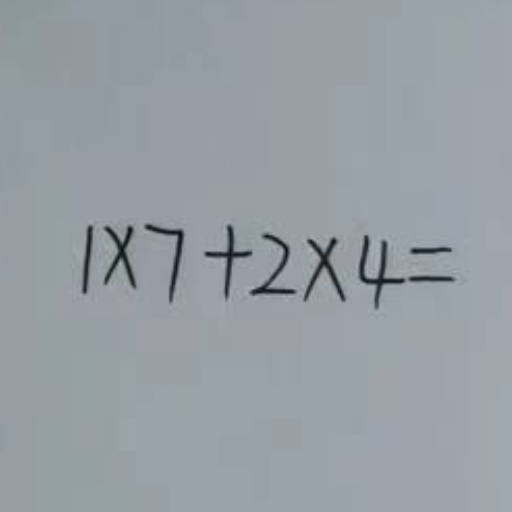 1×7+2×4=